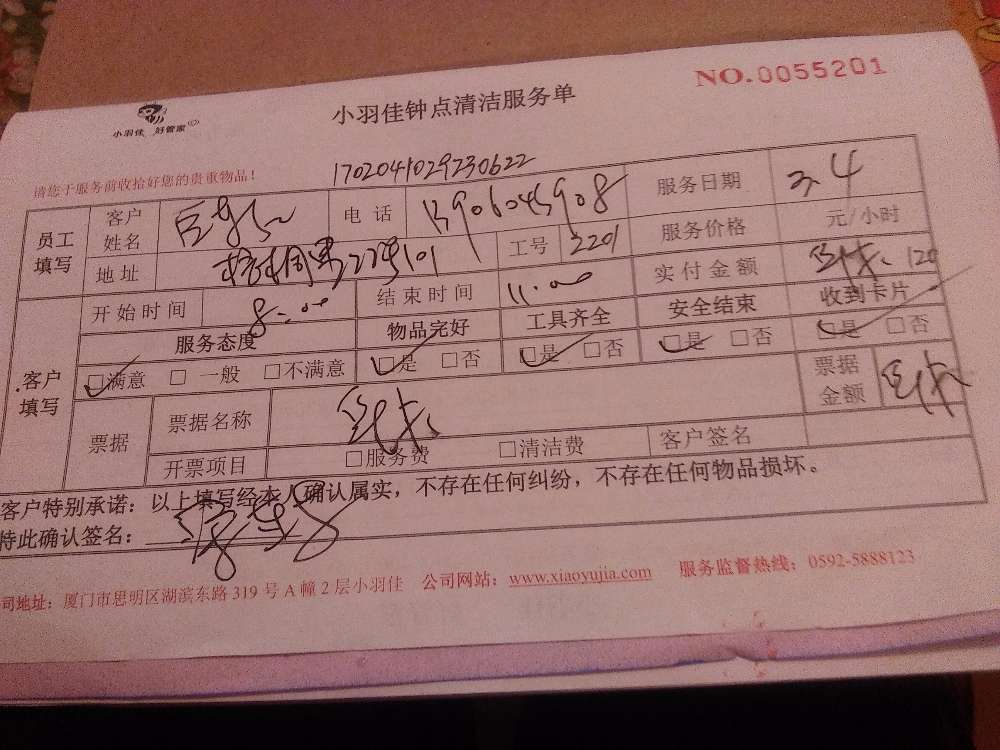 NO.0055201
小羽佳 好管家
小羽佳钟点清洁服务单
请您于服务前收拾好您的贵重物品！
1702041029230622
员工填写 客户姓名 电话 13906045908 服务日期 2.4
地址 工号 2201 服务价格 元/小时
客户填写 开始时间 8:00 结束时间 11:00 实付金额 120
服务态度 物品完好 工具齐全 安全结束 收到卡片
□满意 □一般 □不满意 □是 □否 □是 □否 □是 □否 □是 □否
票据 票据名称 票据金额
开票项目 □服务费 □清洁费 客户签名
客户特别承诺：以上填写经本人确认属实，不存在任何纠纷，不存在任何物品损坏。
特此确认签名：
司地址：厦门市思明区湖滨东路319号A幢2层小羽佳 公司网站：www.xiaoyujia.com 服务监督热线：0592-5888123